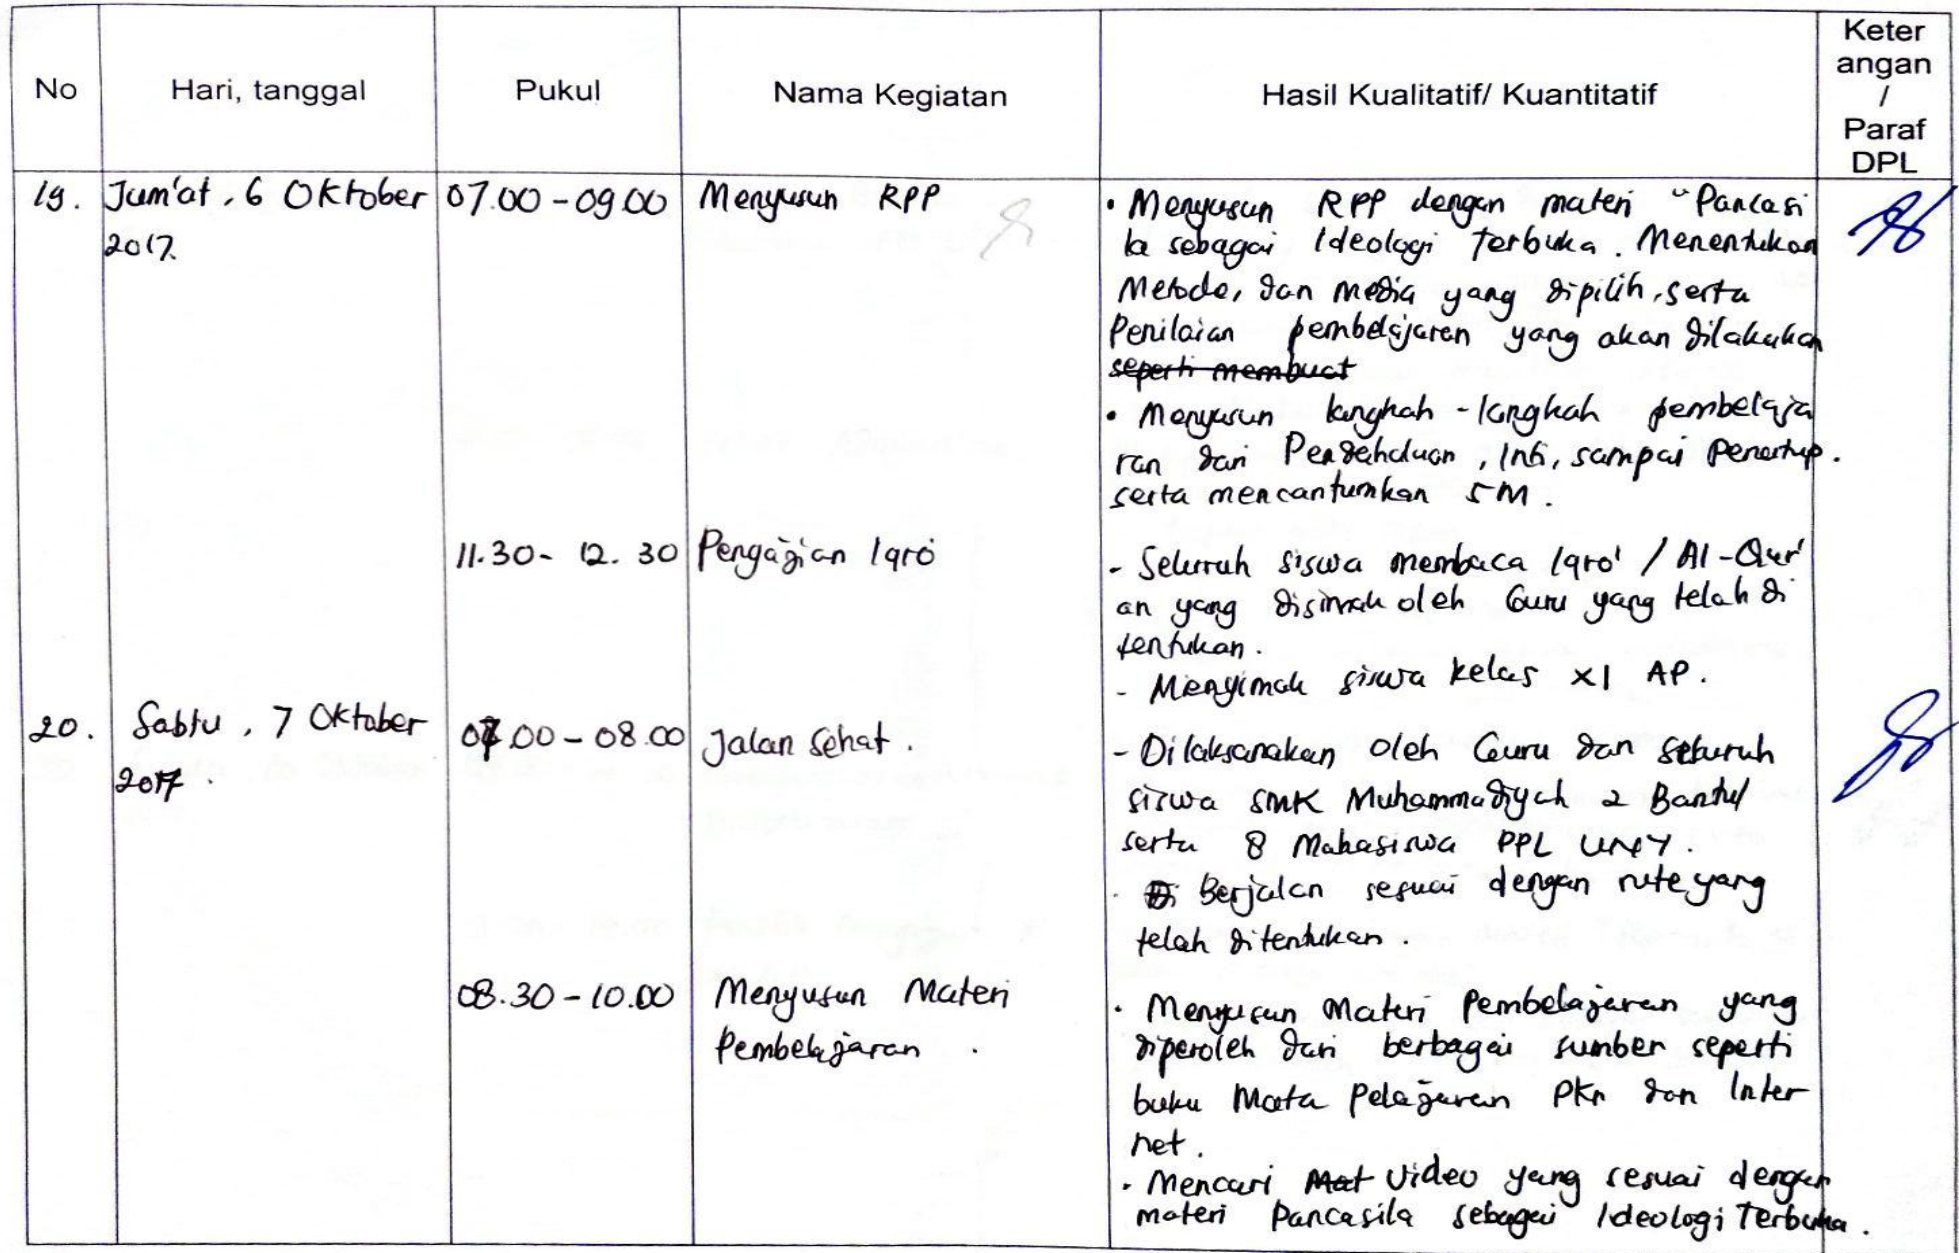 No
Hari, tanggal
Pukul
Nama Kegiatan
Hasil Kualitatif/ Kuantitatif
Keter
angan
/
Paraf
DPL
19.
Jum'at, 6 Oktober
2017.
07.00 - 09.00
Menyusun RPP
• Menyusun RPP dengan materi "Pancasi
la sebagai Ideologi Terbuka. Menentukan
Metode, dan media yang dipilih, serta
Penilaian pembelajaran yang akan dilakukan
seperti membuat
• Menyusun langkah - langkah pembelaja
ran dari Pendahuluan, Inti, sampai Penutup.
serta mencantumkan 5M.
11.30 - 12.30
Pengajian Iqro'
- Seluruh siswa membaca Iqro' / Al-Qur'
an yang disimak oleh Guru yang telah di
tentukan.
- Menyimak siswa kelas XI AP.
20.
Sabtu, 7 Oktober
2017.
07.00 - 08.00
Jalan Sehat.
- Dilaksanakan oleh Guru dan seluruh
siswa SMK Muhammadiyah 2 Bantul
serta 8 Mahasiswa PPL UNY.
- Berjalan sesuai dengan rute yang
telah ditentukan.
08.30 - 10.00
Menyusun Materi
Pembelajaran.
• Menyusun Materi Pembelajaran yang
diperoleh dari berbagai sumber seperti
buku Mata Pelajaran PKn dan Inter
net.
• Mencari Mat Video yang sesuai dengan
materi Pancasila sebagai Ideologi Terbuka.